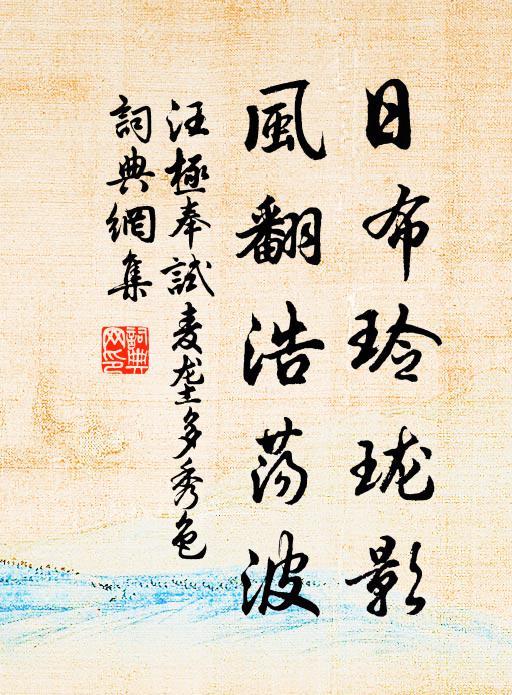 日布玲珑影
風翻浩荡波
汪極奉試麦垄多秀色
詞典網集
詞典
网印